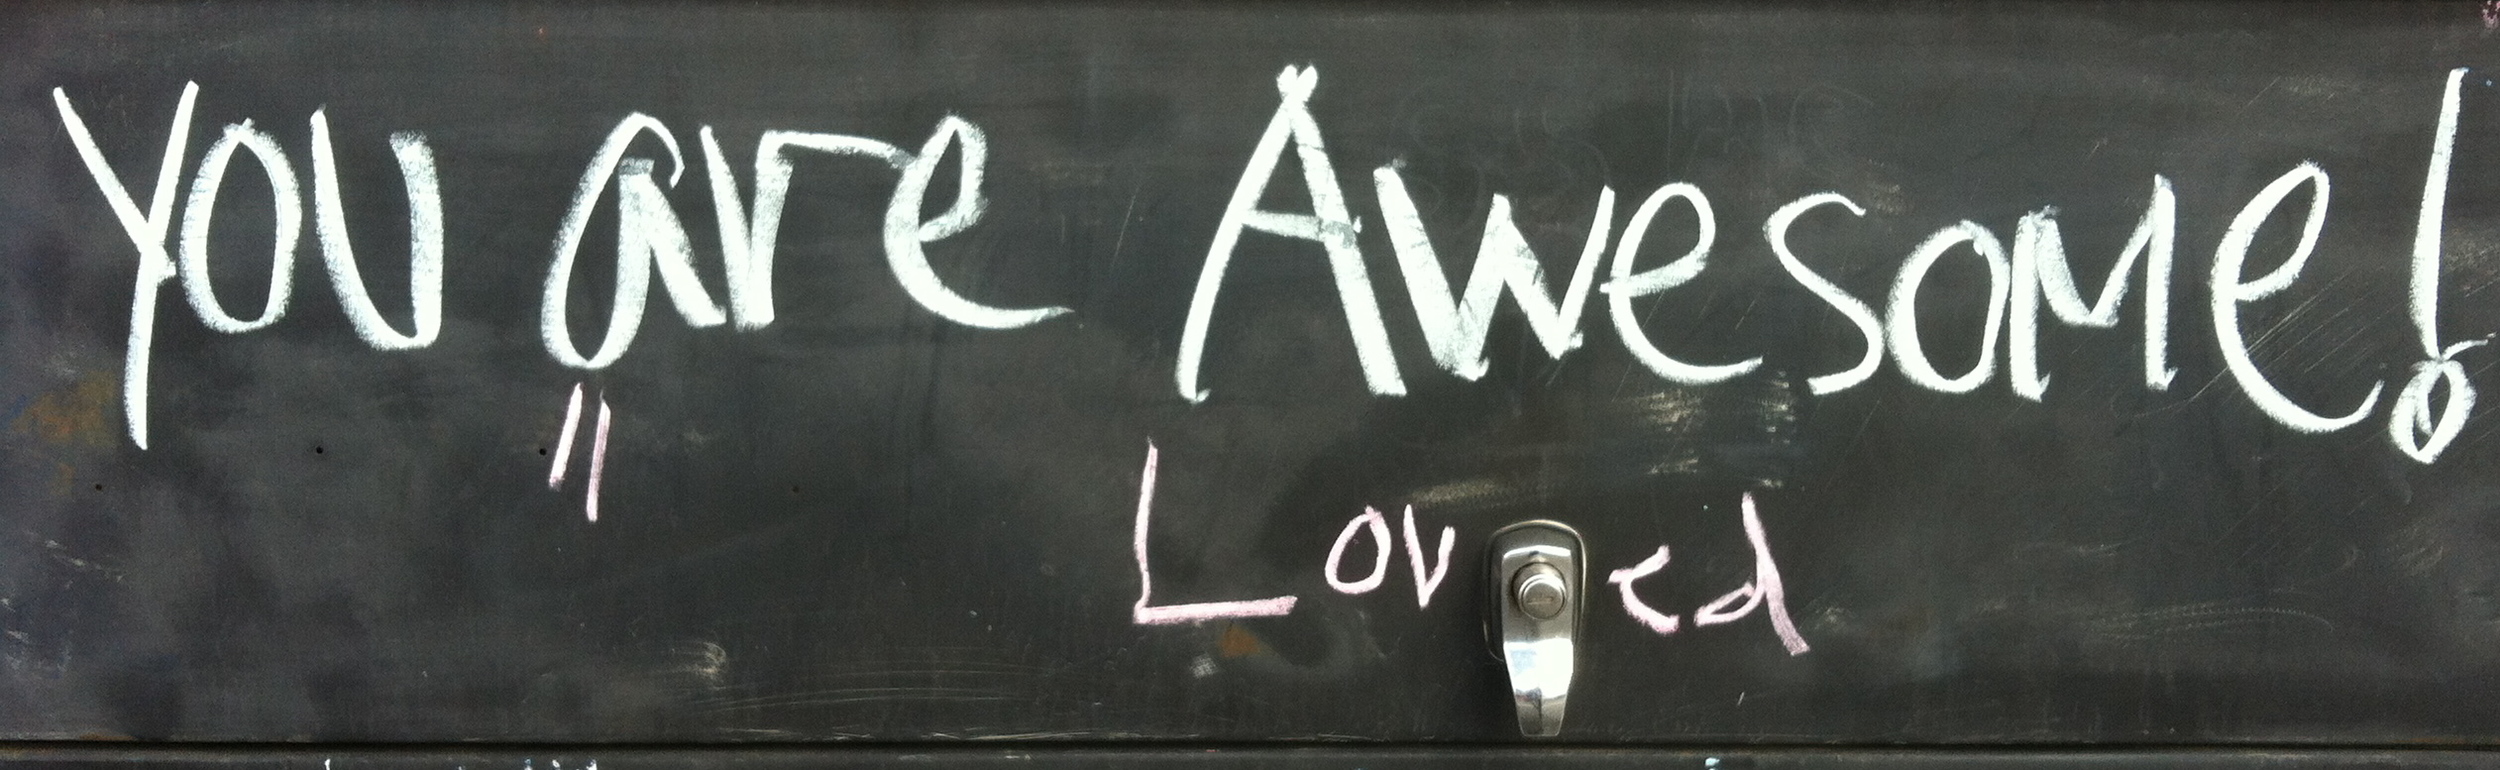 You are Awesome!
" Loved